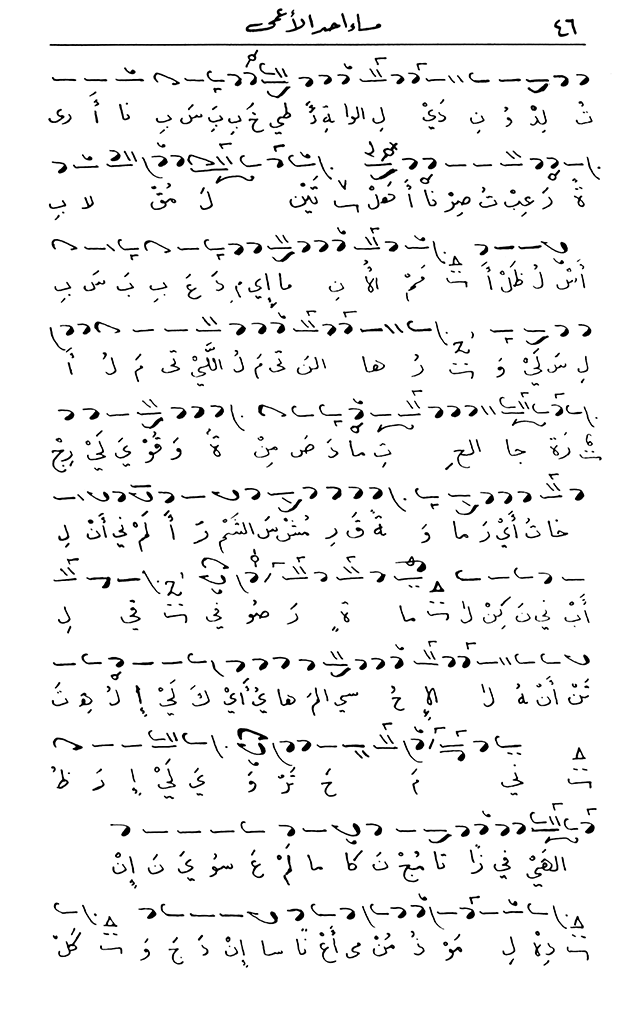 ٤٦ مساء احد الأعمى
تُ لِدْ دُ نِ دَيْ لِ الوا ةِ دَّ طي خَ بِ بَ سَ بِ نا أَ رى
ةُ رَ عِبْ تُ صِرْ نا أَ هَلْ تَيْنْ لَ مُقْ لا بِ
أَسْ لُ ظَلْ أَ مَمْ الأُ نِ ما إي مِ دَ عَ بِ بَ سَ بِ
لِ سَ لَيْ وَ رُ ها الن تى مَ لُ اللَّيْ تى مَ لُ أَ
رَةَ جا الحِ تِ ما دَ صَ مِنْ ةً وَ قُوْ يَ لَيْ رِجْ
خا تُ أَيْ رَ ما وَ ةٌ قَ رِ مُشْ سَ الشَّمْ رَ أَ لَمْ ني أَنْ لِ
أَبْ ني نَ كِنْ لا ما ةٍ رَ صُو في قي لِ
تَنْ أَنْ هُ لا الإِ حُ سي المَ ها يُ أَيْ كَ لَيْ إِ لُ هِ تَ
ني مَ حَ تَرْ وَ يَ لَيْ إِ رَ ظُ
الهَيْ في ذا تا مُجْ نَ كا ما لَمْ عَ سُو يَ نَ إِنْ
دِهْ لِ مَوْ ذُ مُنْ مى أَعْ نا سا إِنْ دَ جَ وَ كَلْ